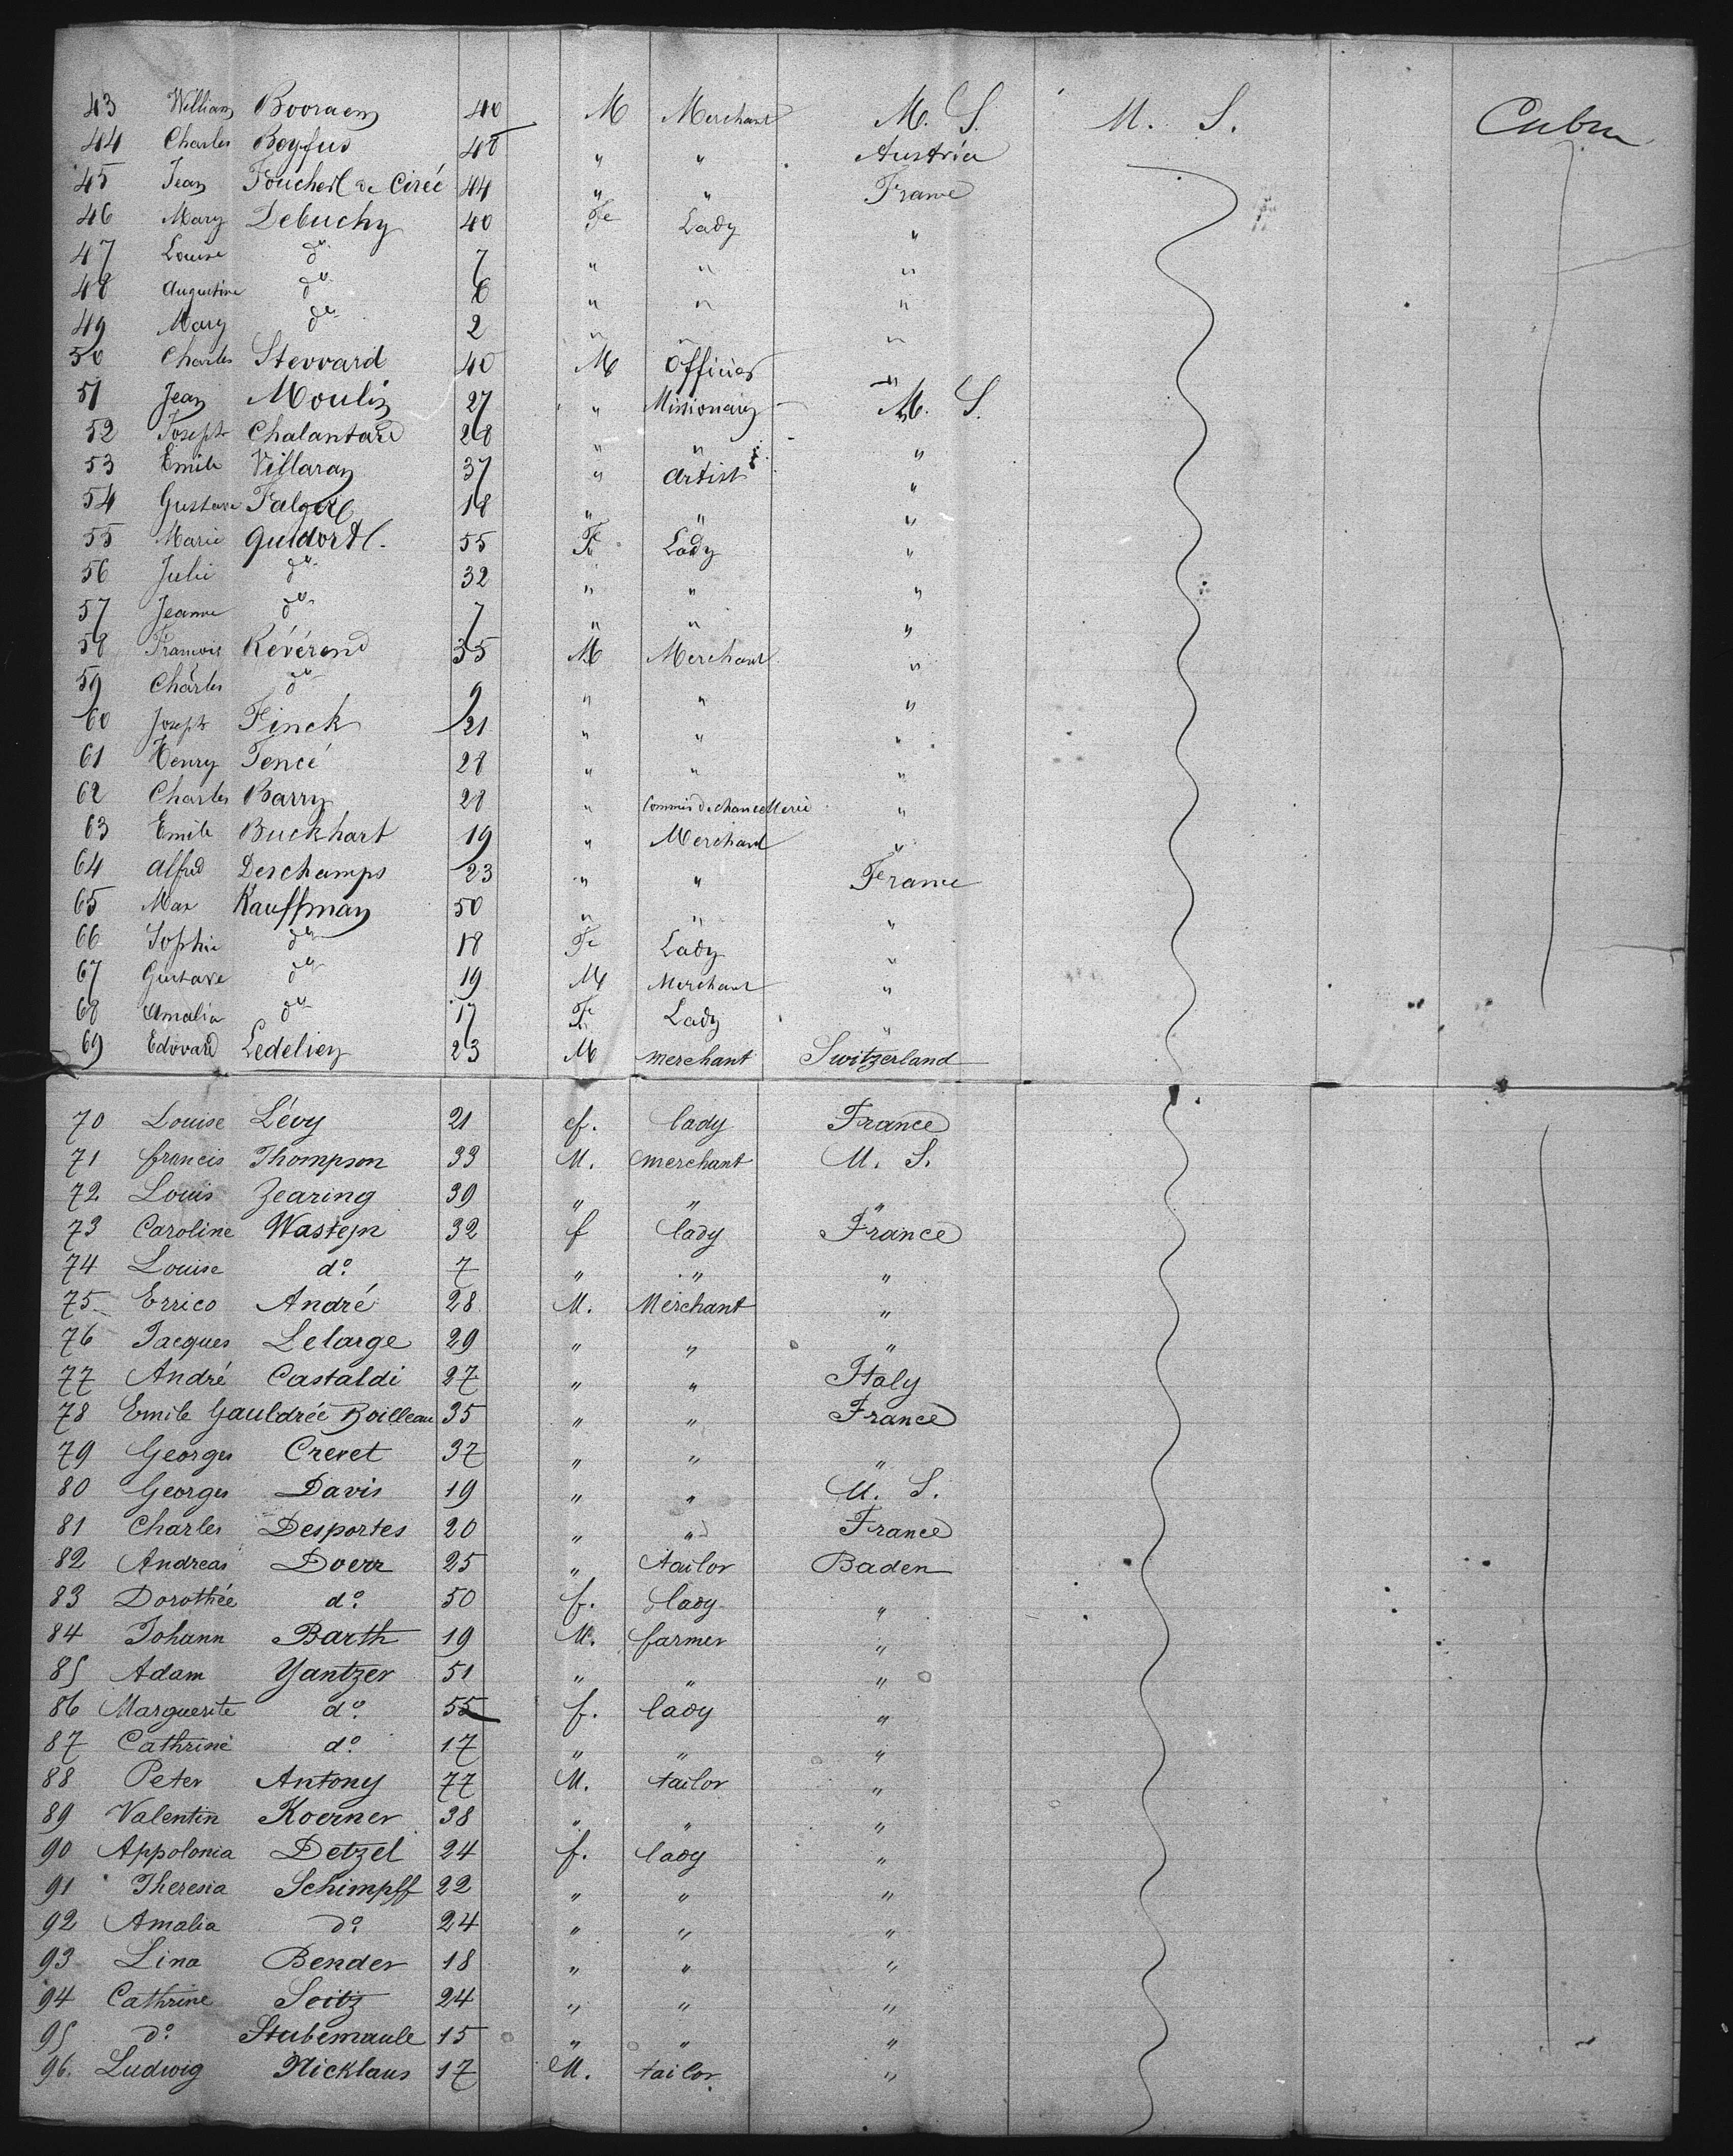 43 William Booraem 40 M Merchant U. S. U. S. Cabin
44 Charles Boyfus 48 " " Austria
45 Jean Foucherl de Cireé 44 " " France
46 Mary Debuchy 40 Fe Lady "
47 Louise do 7 " " "
48 Augustine do 6 " " "
49 Mary do 2 " " "
50 Charles Stevvard 40 M Officier "
51 Jean Moulin 27 " Missionary U. S.
52 Joseph Chalantard 28 " " "
53 Emile Villaran 37 " Artist "
54 Gustave 18 " " "
55 Marie 55 Fe Lady "
56 Julie do 32 " " "
57 Jeanne do 7 " " "
58 Francois Révérend 35 M Merchant "
59 Charles do 9 " " "
60 Joseph Finck 21 " " "
61 Henry Tencé 28 " " "
62 Charles Barry 28 " Commis de chancellerie "
63 Emile Buckhart 19 " Merchant "
64 Alfred Deschamps 23 " " France
65 Max Kauffman 50 " " "
66 Sophie do 18 Fe Lady "
67 Gustave do 19 M Merchant "
68 Amalia do 17 Fe Lady "
69 Edovard Ledelien 23 M merchant Switzerland
70 Louise Lévy 21 f. lady France
71 francis Thompson 33 M. merchant U. S.
72 Louis Zearing 39 " " "
73 Caroline Wastejn 32 f lady France
74 Louise do. 7 " " "
75 Errico André 28 M. Merchant "
76 Jacques Lelarge 29 " " "
77 André Castaldi 27 " " Italy
78 Emile Gauldrée Boilleau 35 " " France
79 Georges Crevet 37 " " "
80 Georges Davis 19 " " U. S.
81 Charles Desportes 20 " " France
82 Andreas Doerr 25 " tailor Baden
83 Dorothée do. 50 f. lady "
84 Johann Barth 19 M. farmer "
85 Adam Yantzer 51 " " "
86 Marguerite do. 55 f. lady "
87 Cathrine do. 17 " " "
88 Peter Antony 77 M. tailor "
89 Valentin Koerner 38 " " "
90 Appolonia Detzel 24 f. lady "
91 Theresia Schimpff 22 " " "
92 Amalia do. 24 " " "
93 Lina Bender 18 " " "
94 Cathrine Seitz 24 " " "
95 do. Stubemaule 15 " " "
96. Ludwig Nicklaus 17 M. tailor "